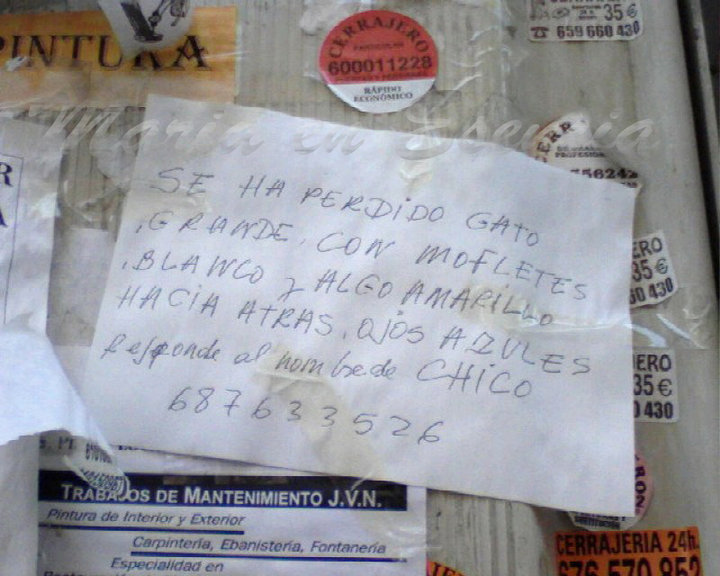 35 €
659 660 430
PINTURA
CERRAJERO
PARTICULAR
600011228
RÁPIDO
ECONÓMICO
Maria en Esencia
CERRA
PROFESION
556242
R
A
SE HA PERDIDO GATO
.GRANDE, CON MOFLETES
.BLANCO y ALGO AMARILLO
HACIA ATRAS. OJOS AZULES
Responde al nombre de CHICO
687633526
ERO
35 €
60 430
ERO
35 €
0 430
TRABAJOS DE MANTENIMIENTO J.V.N.
Pintura de Interior y Exterior
Carpintería, Ebanistería, Fontanería
Especialidad en
CERRAJERIA 24h.
676 570 952